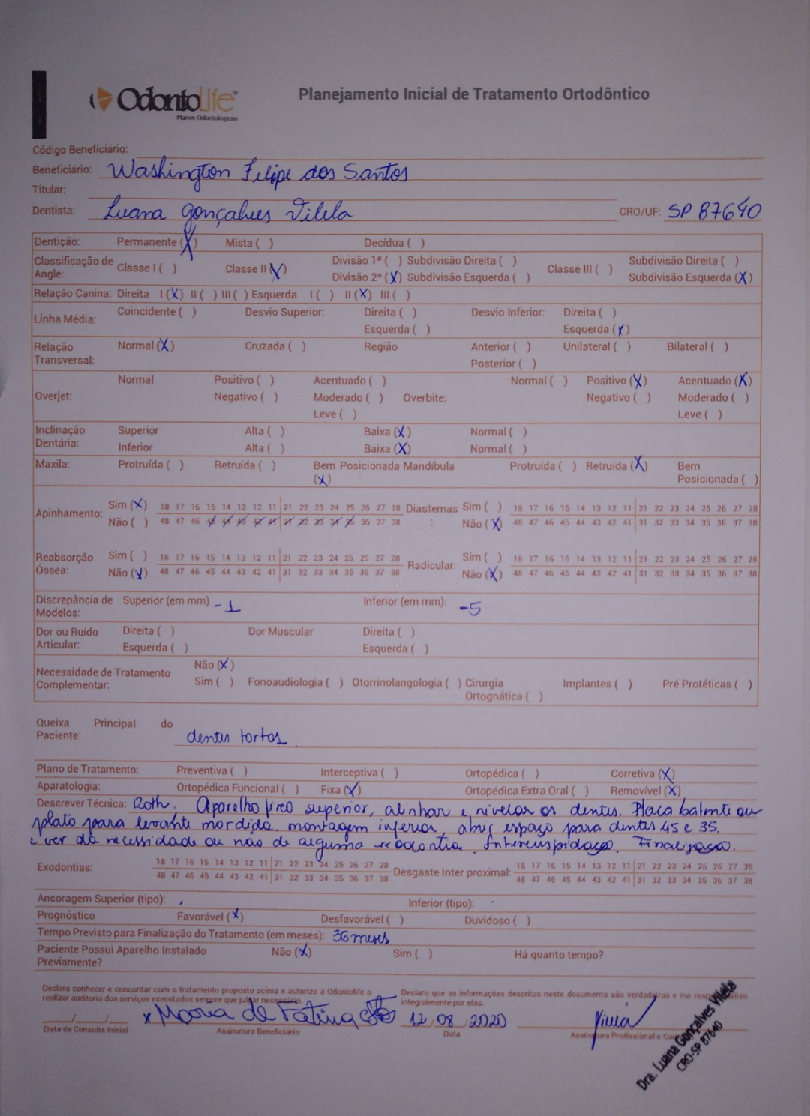 OdontoLife
Planos Odontológicos
Planejamento Inicial de Tratamento Ortodôntico
Código Beneficiário:
Beneficiário: Washington Felipe dos Santos
Titular:
Dentista: Luana Gonçalves Vilela CRO/UF: SP 87640
Dentição: Permanente (X) Mista ( ) Decídua ( )
Classificação de Angle: Classe I ( ) Classe II (X) Divisão 1ª ( ) Subdivisão Direita ( ) Classe III ( ) Subdivisão Direita ( )
Divisão 2ª (X) Subdivisão Esquerda ( ) Subdivisão Esquerda (X)
Relação Canina: Direita I (X) II ( ) III ( ) Esquerda I ( ) II (X) III ( )
Linha Média: Coincidente ( ) Desvio Superior: Direita ( ) Desvio Inferior: Direita ( )
Esquerda ( ) Esquerda (X)
Relação Transversal: Normal (X) Cruzada ( ) Região Anterior ( ) Unilateral ( ) Bilateral ( )
Posterior ( )
Normal Positivo ( ) Acentuado ( ) Normal ( ) Positivo (X) Acentuado (X)
Overjet: Negativo ( ) Moderado ( ) Overbite: Negativo ( ) Moderado ( )
Leve ( ) Leve ( )
Inclinação Dentária: Superior Alta ( ) Baixa (X) Normal ( )
Inferior Alta ( ) Baixa (X) Normal ( )
Maxila: Protruída ( ) Retruída ( ) Bem Posicionada (X) Mandíbula Protruída ( ) Retruída (X) Bem Posicionada ( )
Apinhamento: Sim (X) 18 17 16 15 14 13 12 11 21 22 23 24 25 26 27 28 Diastemas: Sim ( ) 18 17 16 15 14 13 12 11 21 22 23 24 25 26 27 28
Não ( ) 48 47 46 45 44 43 42 41 31 32 33 34 35 36 37 38 Não (X) 48 47 46 45 44 43 42 41 31 32 33 34 35 36 37 38
Reabsorção Óssea: Sim ( ) 18 17 16 15 14 13 12 11 21 22 23 24 25 26 27 28 Radicular: Sim ( ) 18 17 16 15 14 13 12 11 21 22 23 24 25 26 27 28
Não (X) 48 47 46 45 44 43 42 41 31 32 33 34 35 36 37 38 Não (X) 48 47 46 45 44 43 42 41 31 32 33 34 35 36 37 38
Discrepância de Modelos: Superior (em mm) -1 Inferior (em mm): -5
Dor ou Ruído Articular: Direita ( ) Dor Muscular Direita ( )
Esquerda ( ) Esquerda ( )
Necessidade de Tratamento Complementar: Não (X)
Sim ( ) Fonoaudiologia ( ) Otorrinolangologia ( ) Cirurgia Ortognática ( ) Implantes ( ) Pré Protéticas ( )
Queixa Principal do Paciente: dentes tortos
Plano de Tratamento: Preventiva ( ) Interceptiva ( ) Ortopédica ( ) Corretiva (X)
Aparatologia: Ortopédica Funcional ( ) Fixa (X) Ortopédica Extra Oral ( ) Removível (X)
Descrever Técnica: Roth. Aparelho fixo superior, alinhar e nivelar os dentes. Placa batente ou
plato para levante mordida, montagem inferior, abrir espaço para dentes 45 e 35.
e ver da necessidade ou não de alguma exodontia. Intercuspidação. Finalização.
Exodontias: 18 17 16 15 14 13 12 11 21 22 23 24 25 26 27 28 Desgaste Inter proximal: 18 17 16 15 14 13 12 11 21 22 23 24 25 26 27 28
48 47 46 45 44 43 42 41 31 32 33 34 35 36 37 38 48 47 46 45 44 43 42 41 31 32 33 34 35 36 37 38
Ancoragem Superior (tipo): Inferior (tipo):
Prognóstico Favorável (X) Desfavorável ( ) Duvidoso ( )
Tempo Previsto para Finalização do Tratamento (em meses): 36 meses
Paciente Possui Aparelho Instalado Previamente? Não (X) Sim ( ) Há quanto tempo?
Declaro conhecer e concordar com o tratamento proposto acima e autorizo a Odontolife a realizar auditoria dos serviços executados sempre que julgar necessário.
Declaro que as informações descritas neste documento são verdadeiras e me responsabilizo integralmente por elas.
x Maria de Fatima 12 08 2020
Data da Consulta Inicial Assinatura Beneficiário Data Assinatura Profissional e
Dra. Luana Gonçalves Vilela
CRO-SP 87640